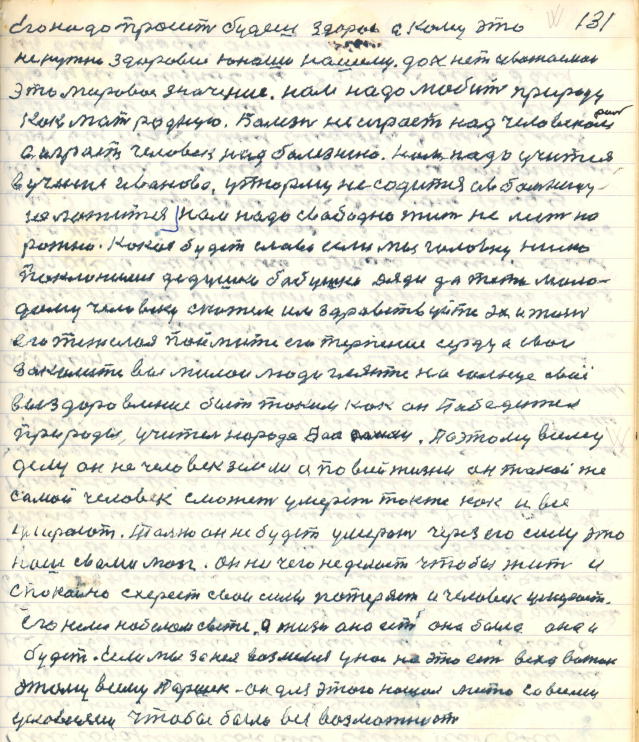 131
его надо просит будеш здоров а кому это
не нужно здоровие юноши нашему. дох нет
это мировое значение. нам надо любит природу
как мат родную. Болезн не играет над человеком рит
а играет человек над болезнию. нам надо учится
в учение Иванова, у тюрму не садится и в больницу
не ложится нам надо свободно жит не лезт на
рожно. Какая будет слава если мы головку низко
поклонимся дедушки бабушки дяди да тети моло-
дому человеку скажем им здравствуйте эх и жизн
его тяжолоя поймите его терпение сердца свои
закалити вы милои люди глянте на солнце своё
выздоровление быт таким как он Победител
природы, учител народа Бог земли. Поэтому всему
делу он не человек земли а по всей жизни он такой же
самой человек сможет умерет также как и все
умирают. Только он не будет умират через его силу это
наш свами мозг. он ни чего не делает чтобы жит и
спокойно свои силы потеряет и человек умирает.
его нема на белом свете, а жизн она ест она была она и
будет. если мы за нея возмемся у нас на это ест
этому всему Паршек. он для этого нашол место со всеми
условиями чтобы была вся возможност